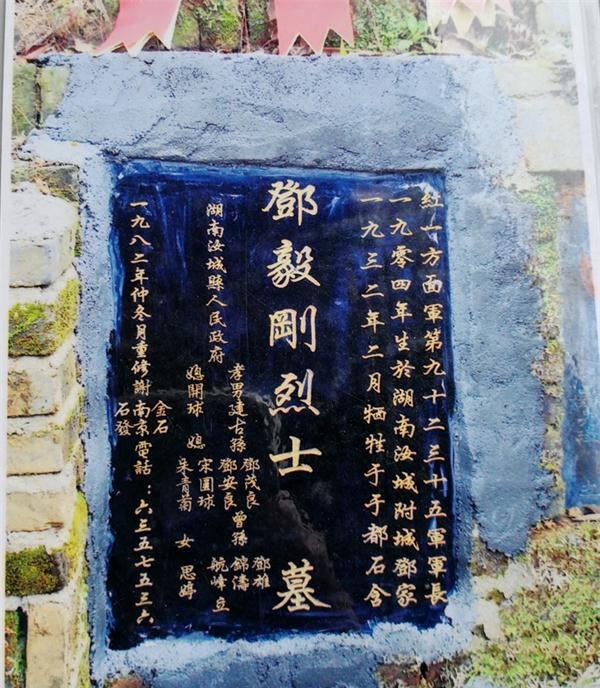 紅一方面軍第九十二三十五軍軍長
一九零四年生於湖南汝城附城鄧家
一九三二年二月牺牲于于都石含
鄧毅剛烈士墓
湖南汝城縣人民政府
孝男建古孫 鄧茂良 曾孫 鄧雄
鄧安良 錦濤
媳開球 媳 宋圓球 航峰立
朱青南 女 思婷
一九八二年仲冬月重修謝南京電話：六三五七五三六
金石
石發